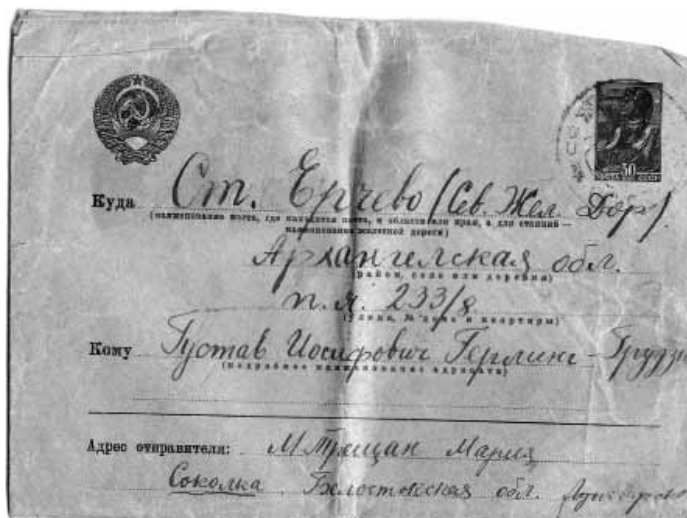 30
Куда Ст. Ерчево (Сев. Жел. Дор).
(наименование места, где находится почта, и области или края, а для станций —
наименование железной дороги)
Архангелская обл.
(район, село или деревня)
п. я. 233/8
(улица, № дома и квартиры)
Кому Густав Иосифович Герлинг-Грудзи
(подробное наименование адресата)
Адрес отправителя: Мария
Соколка, Белостокская обл.